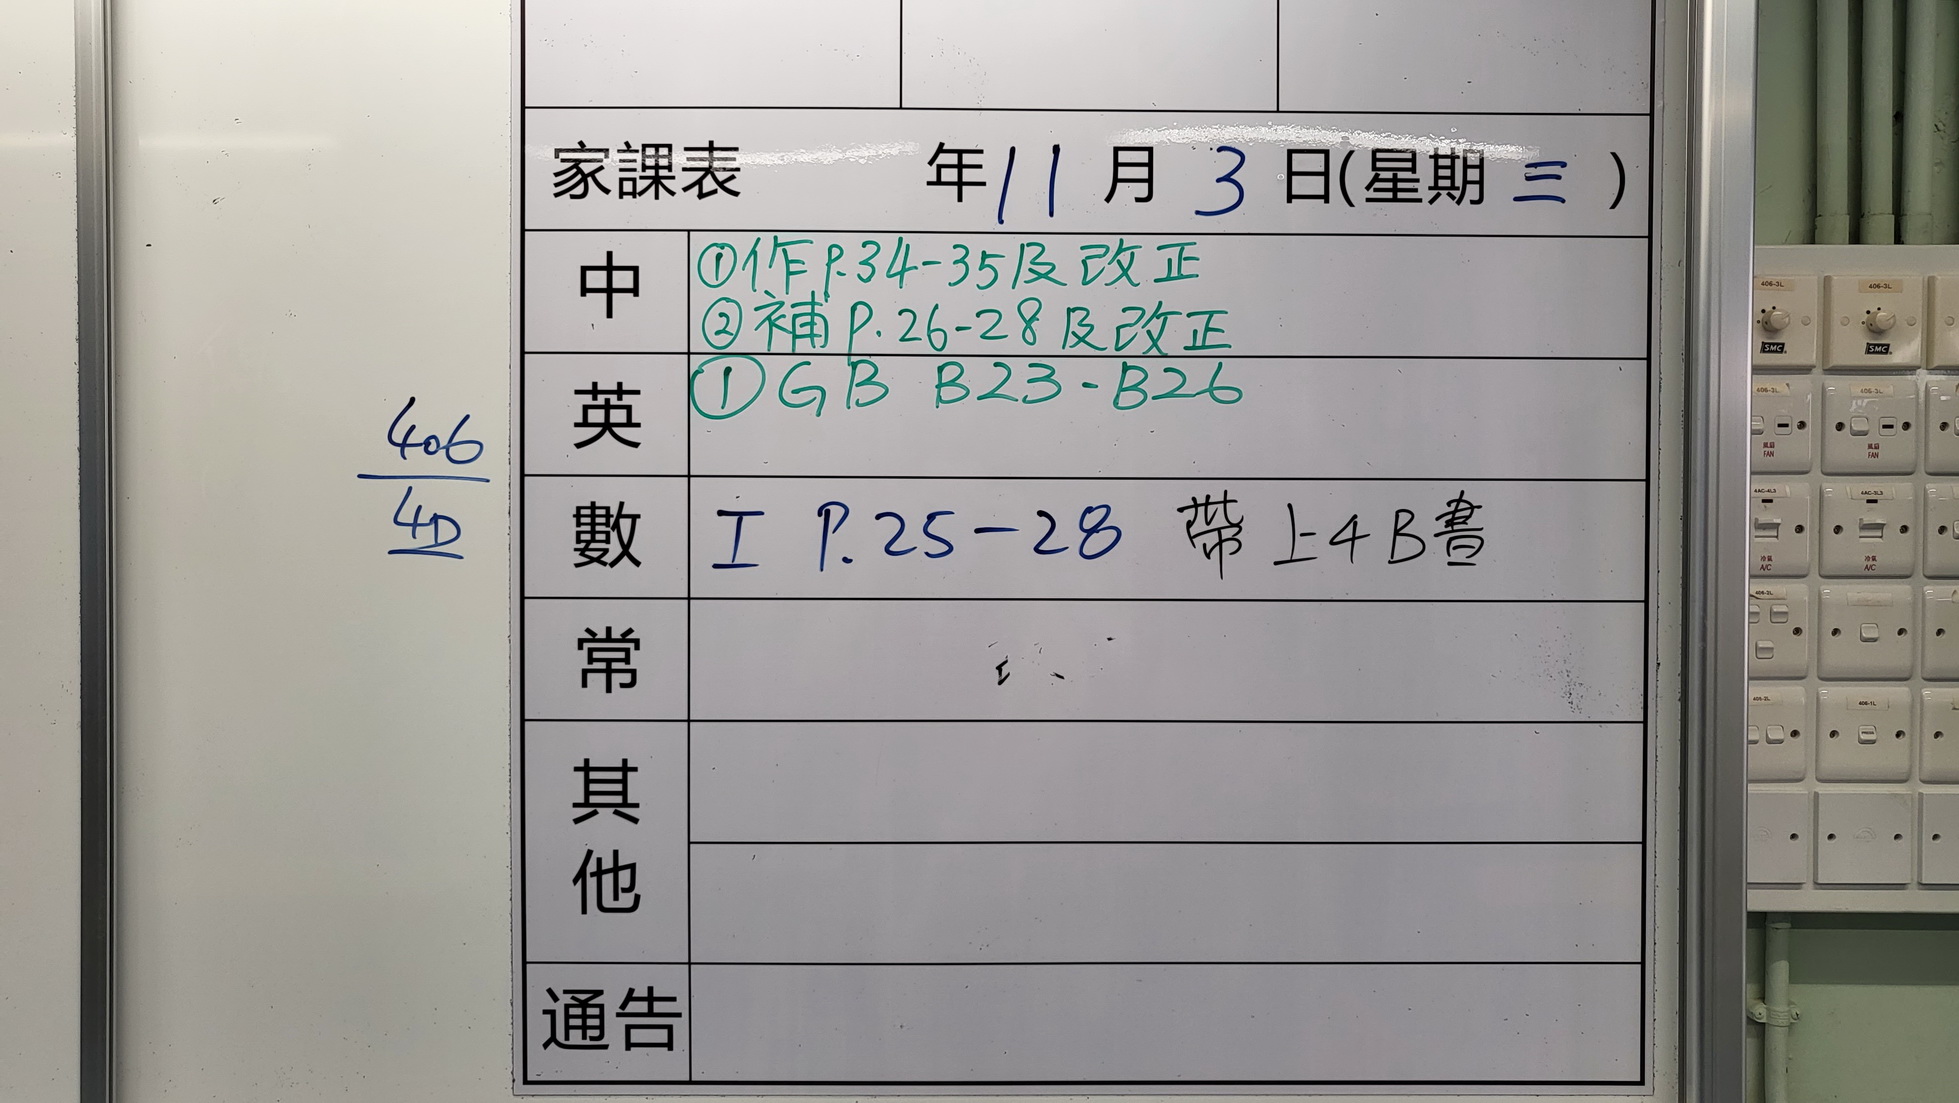 家課表 年11月3日(星期三)
中
①作P.34-35及改正
②補P.26-28及改正
英
①GB B23-B26
數
工 P.25-28 帶上4B書
常
其他
通告
406
4D
406-3L
406-3L
SMC
SMC
風扇
FAN
風扇
FAN
4AC-3L3
冷氣
A/C
冷氣
A/C
406-1L